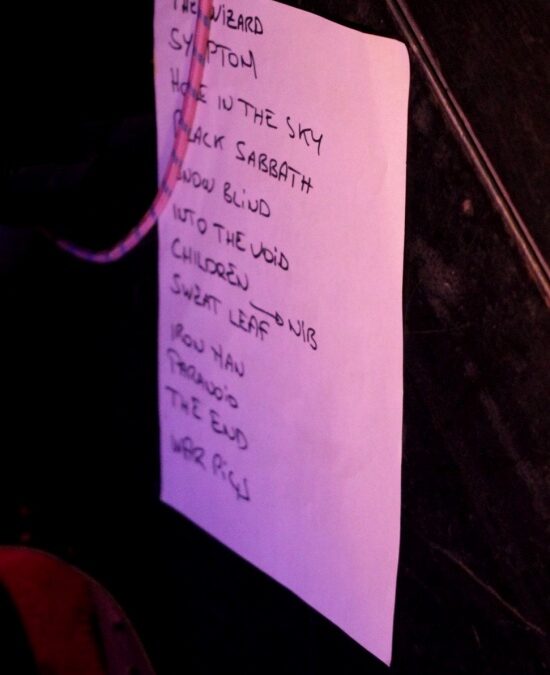 THE WIZARD
SYMPTOM
HOLE IN THE SKY
BLACK SABBATH
SNOW BLIND
INTO THE VOID
CHILDREN → NIB
SWEAT LEAF
IRON MAN
PARANOID
THE END
WAR PIGS